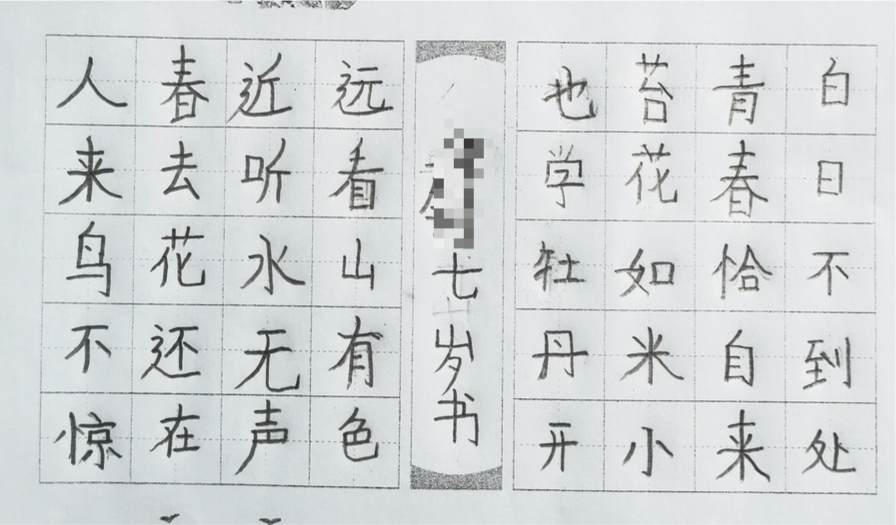 白日不到处
青春恰自来
苔花如米小
也学牡丹开
七岁书
远看山有色
近听水无声
春去花还在
人来鸟不惊